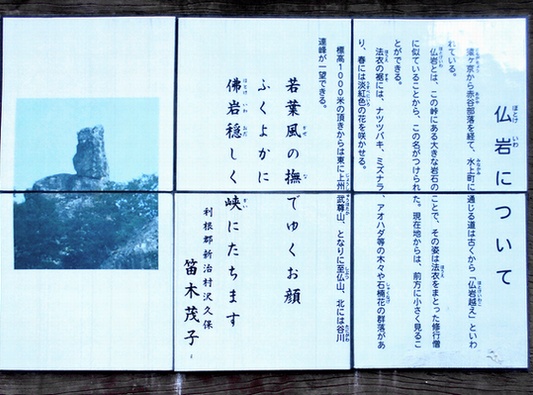 仏岩について
猿ヶ京から赤谷部落を経て、水上町に通じる道は古くから「仏岩越え」といわ
れている。
仏岩とは、この峠にある大きな岩石のことで、その姿は法衣をまとった修行僧
に似ていることから、この名がつけられた。現在地からは、前方に小さく見るこ
とができる。
法衣の裾には、ナツツバキ、ミズナラ、アオハダ等の木々や石楠花の群落があ
り、春には淡紅色の花を咲かせる。
標高1000米の頂きからは東に上州武尊山、となりに至仏山、北には谷川
連峰が一望できる。
若葉風の撫でゆくお顔
ふくよかに
佛岩穏しく峡にたちます
利根郡新治村沢久保
笛木茂子